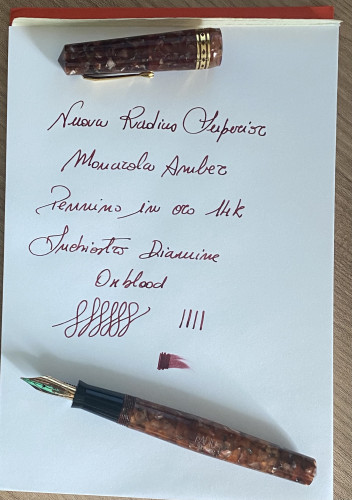 Nuova Radius Superior
Manarola Amber
Pennino in oro 14k
Inchiostro Diamine
Oxblood